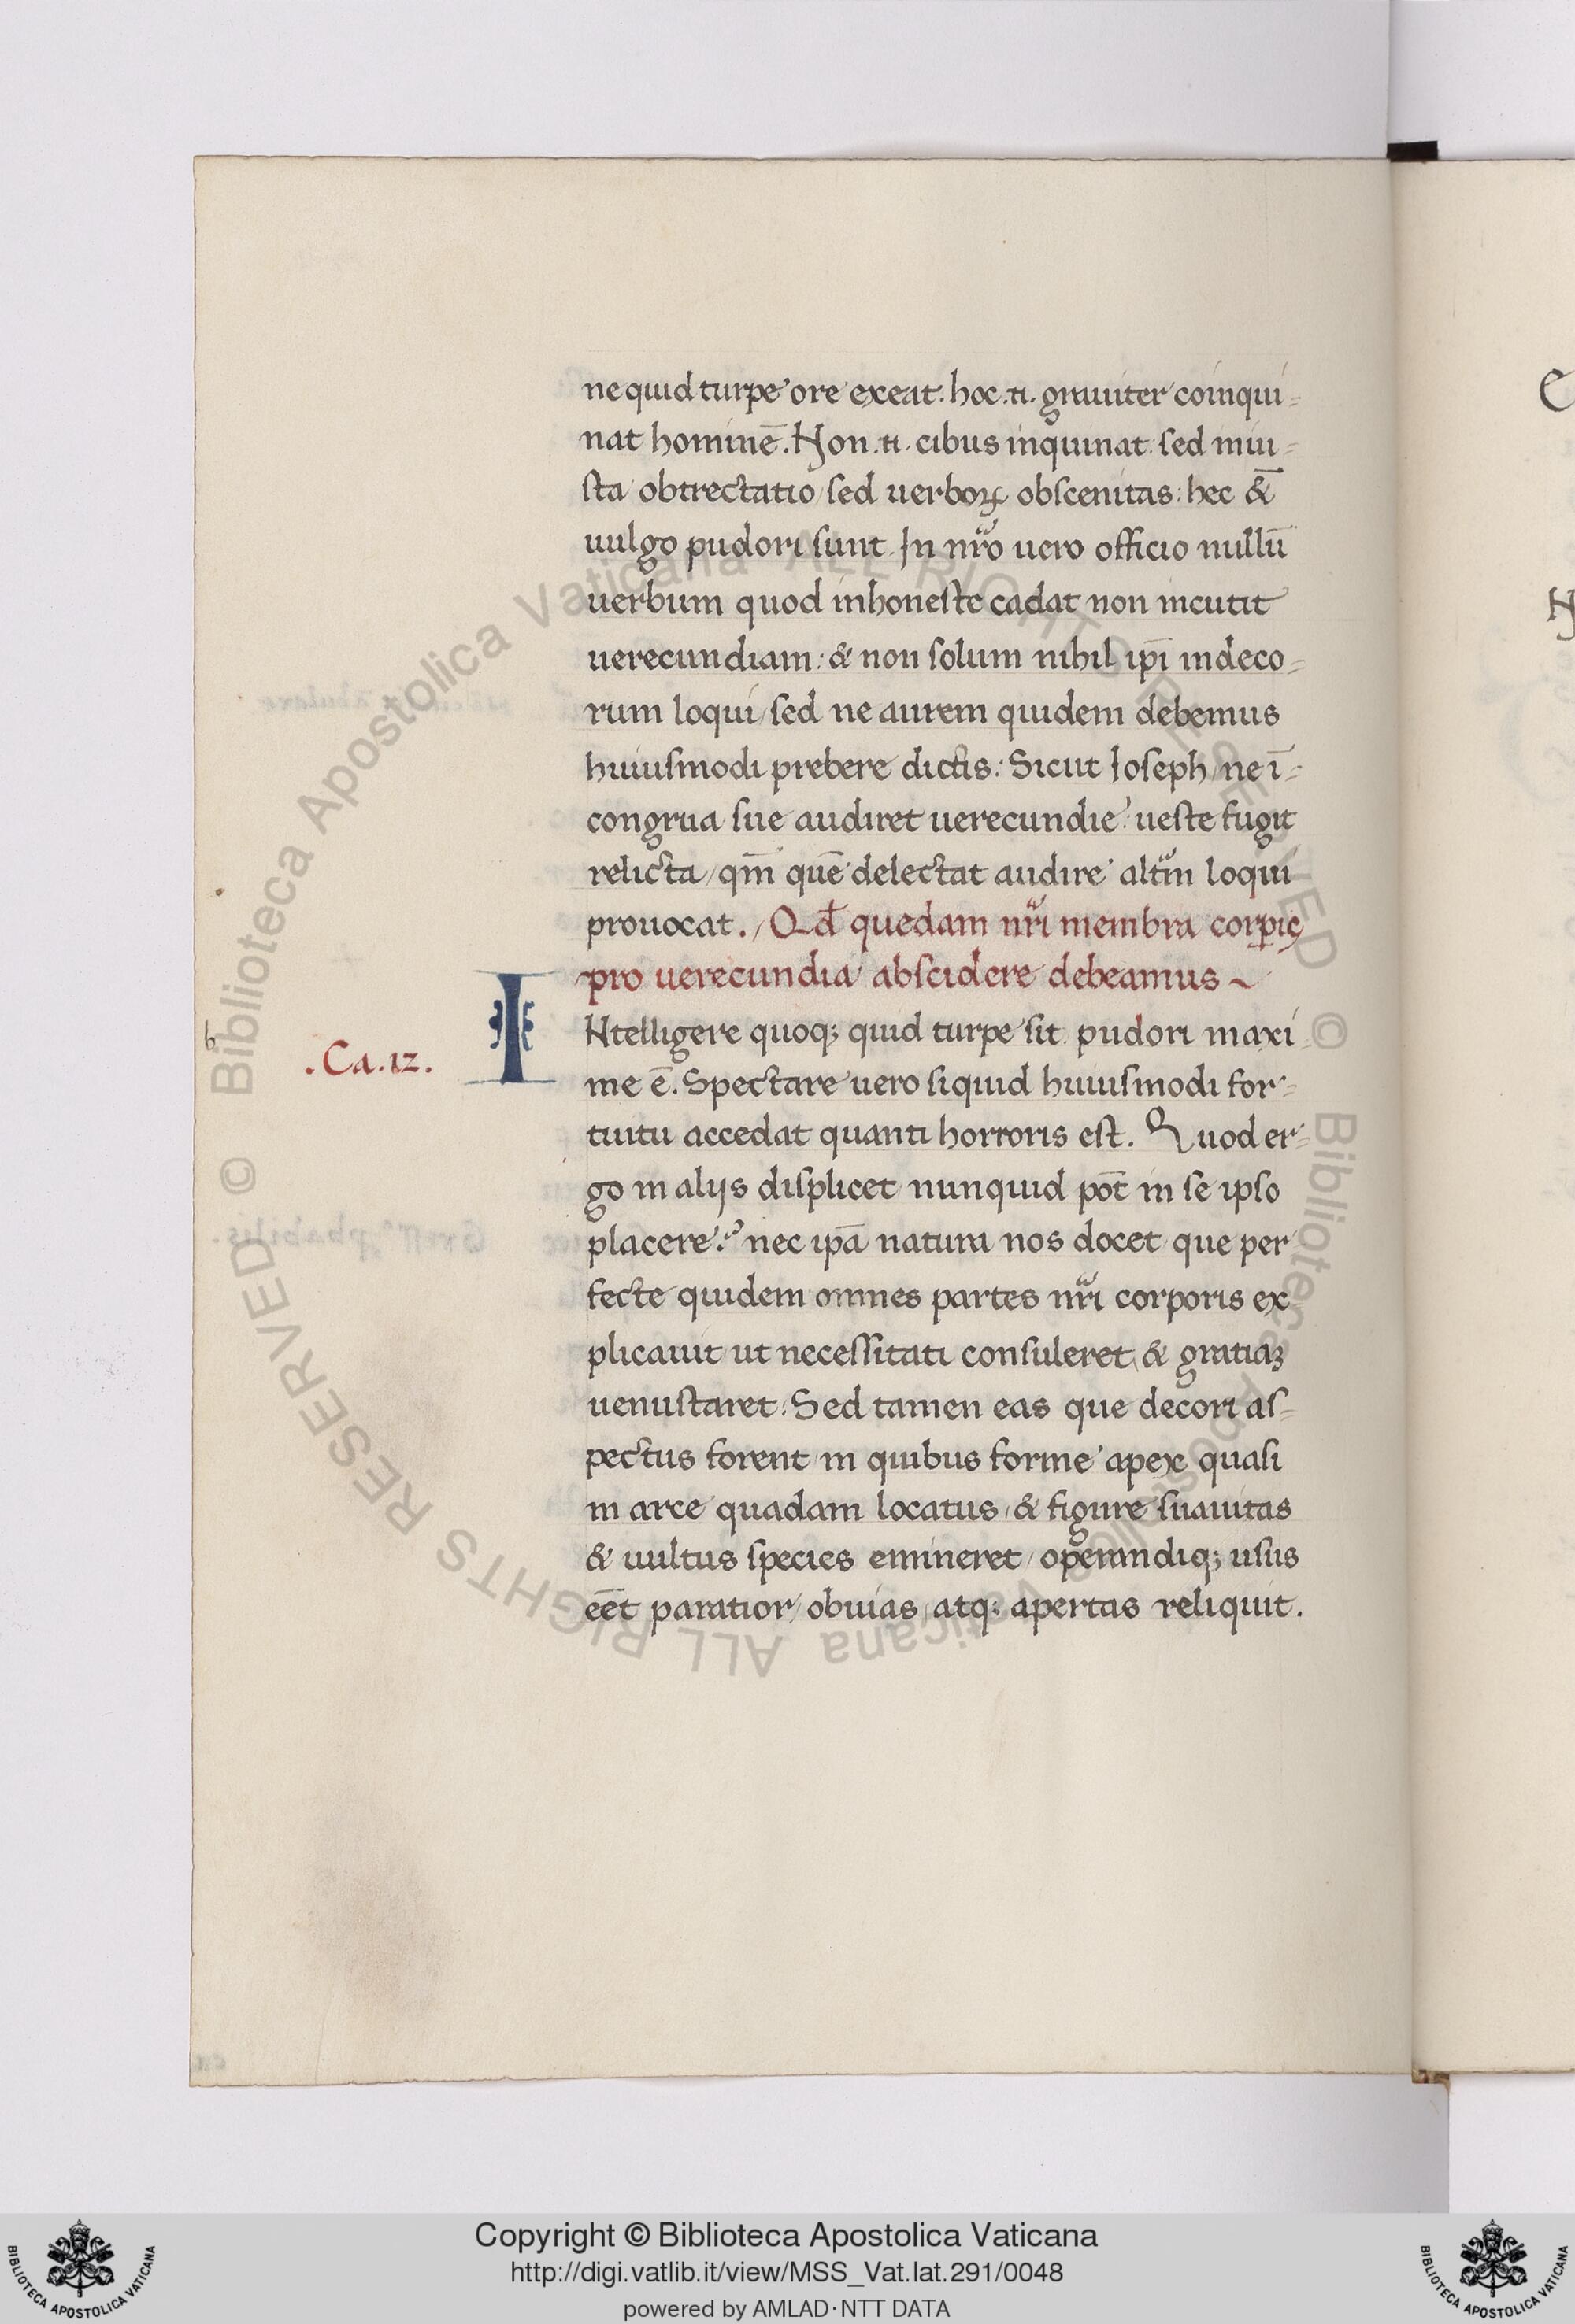 ne quid turpe ore exeat. hoc .n. grauiter coinqui-
nat hominē. Non .n. cibus inquinat sed iniu-
sta obtrectatio sed uerboꝝ obscenitas: hec &̄
uulgo pudori sunt. In nr̄o uero officio nullū
uerbum quod inhoneste cadat non incutit
uerecundiam: & non solum nihil ip̄i indeco-
rum loqui / sed ne aurem quidem debemus
huiusmodi prebere dictis: Sicut Ioseph / ne ī-
congrua sue audiret uerecundie: ueste fugit
relicta / qm̄ quē delectat audire altm̄ loqui
prouocat. / Qd̄ quedam nr̄i membra corpis
pro uerecundia abscidere debeamus ~
.Ca.12.
INtelligere quoq; quid turpe sit pudori maxi
me ē. Spectare uero siquid huiusmodi for-
tuitu accedat quanti horroris est. Quod er-
go in alijs displicet nunquid pōt in se ipso
placere? nec ip̄a natura nos docet que per
fecte quidem omnes partes nr̄i corporis ex
plicauit ut necessitati consuleret & gratiaꝫ
uenustaret. Sed tamen eas que decori as-
pectus forent in quibus forme apex quasi
in arce quadam locatus / & figure suauitas
& uultus species emineret / operandiq; usus
eēt paratior / obuias atq; apertas reliquit.
Copyright © Biblioteca Apostolica Vaticana
http://digi.vatlib.it/view/MSS_Vat.lat.291/0048
powered by AMLAD·NTT DATA
BIBLIOTECA APOSTOLICA VATICANA
BIBLIOTECA APOSTOLICA VATICANA
© Biblioteca Apostolica Vaticana ALL RIGHTS RESERVED
© Biblioteca Apostolica Vaticana ALL RIGHTS RESERVED